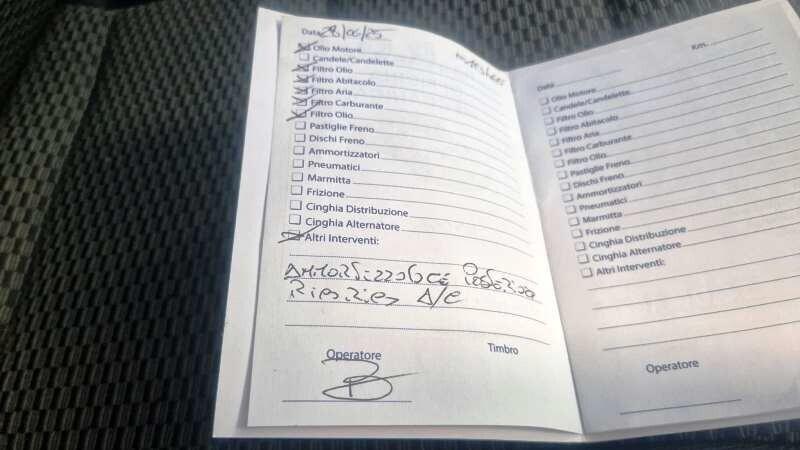 Data 28/06/25
Olio Motore
Candele/Candelette
Filtro Olio
Filtro Abitacolo
Filtro Aria
Filtro Carburante
Filtro Olio
Pastiglie Freno
Dischi Freno
Ammortizzatori
Pneumatici
Marmitta
Frizione
Cinghia Distribuzione
Cinghia Alternatore
Altri Interventi:
A/C
Operatore
Timbro
Data
Km.
Olio Motore
Candele/Candelette
Filtro Olio
Filtro Abitacolo
Filtro Aria
Filtro Carburante
Filtro Olio
Pastiglie Freno
Dischi Freno
Ammortizzatori
Pneumatici
Marmitta
Frizione
Cinghia Distribuzione
Cinghia Alternatore
Altri Interventi:
Operatore